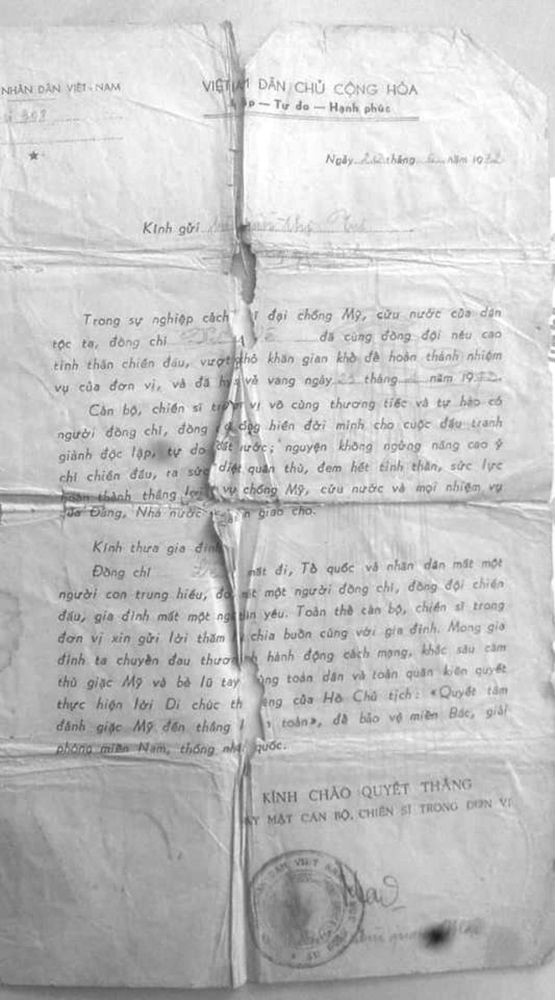 NHÂN DÂN VIỆT-NAM
VIỆT NAM DÂN CHỦ CỘNG HÒA
308
lập — Tự do — Hạnh phúc
Ngày 20 tháng 6 năm 1972
Kính gửi
Trong sự nghiệp cách vĩ đại chống Mỹ, cứu nước của dân
tộc ta, đồng chí đã cùng đồng đội nêu cao
tinh thần chiến đấu, vượt khó khăn gian khổ để hoàn thành nhiệm
vụ của đơn vị, và đã hy vẻ vang ngày tháng năm 1972.
Cán bộ, chiến sĩ trong đơn vị vô cùng thương tiếc và tự hào có
người đồng chí, đồng hiến đời mình cho cuộc đấu tranh
giành độc lập, tự do đất nước; nguyện không ngừng nâng cao ý
chí chiến đấu, ra sức diệt quân thù, đem hết tinh thần, sức lực
hoàn thành thắng lợi vụ chống Mỹ, cứu nước và mọi nhiệm vụ
của Đảng, Nhà nước giao cho.
Kính thưa gia đình
Đồng chí mất đi, Tổ quốc và nhân dân mất một
người con trung hiếu, mất một người đồng chí, đồng đội chiến
đấu, gia đình mất một người thân yêu. Toàn thể cán bộ, chiến sĩ trong
đơn vị xin gửi lời thăm chia buồn cùng với gia đình. Mong gia
đình ta chuyển đau thương hành động cách mạng, khắc sâu căm
thù giặc Mỹ và bè lũ tay cùng toàn dân và toàn quân kiên quyết
thực hiện lời Di chúc thiêng của Hồ Chủ tịch: «Quyết tâm
đánh giặc Mỹ đến thắng toàn», để bảo vệ miền Bắc, giải
phóng miền Nam, thống nhất quốc.
KÍNH CHÀO QUYẾT THẮNG
MẶT CÁN BỘ, CHIẾN SĨ TRONG ĐƠN VỊ